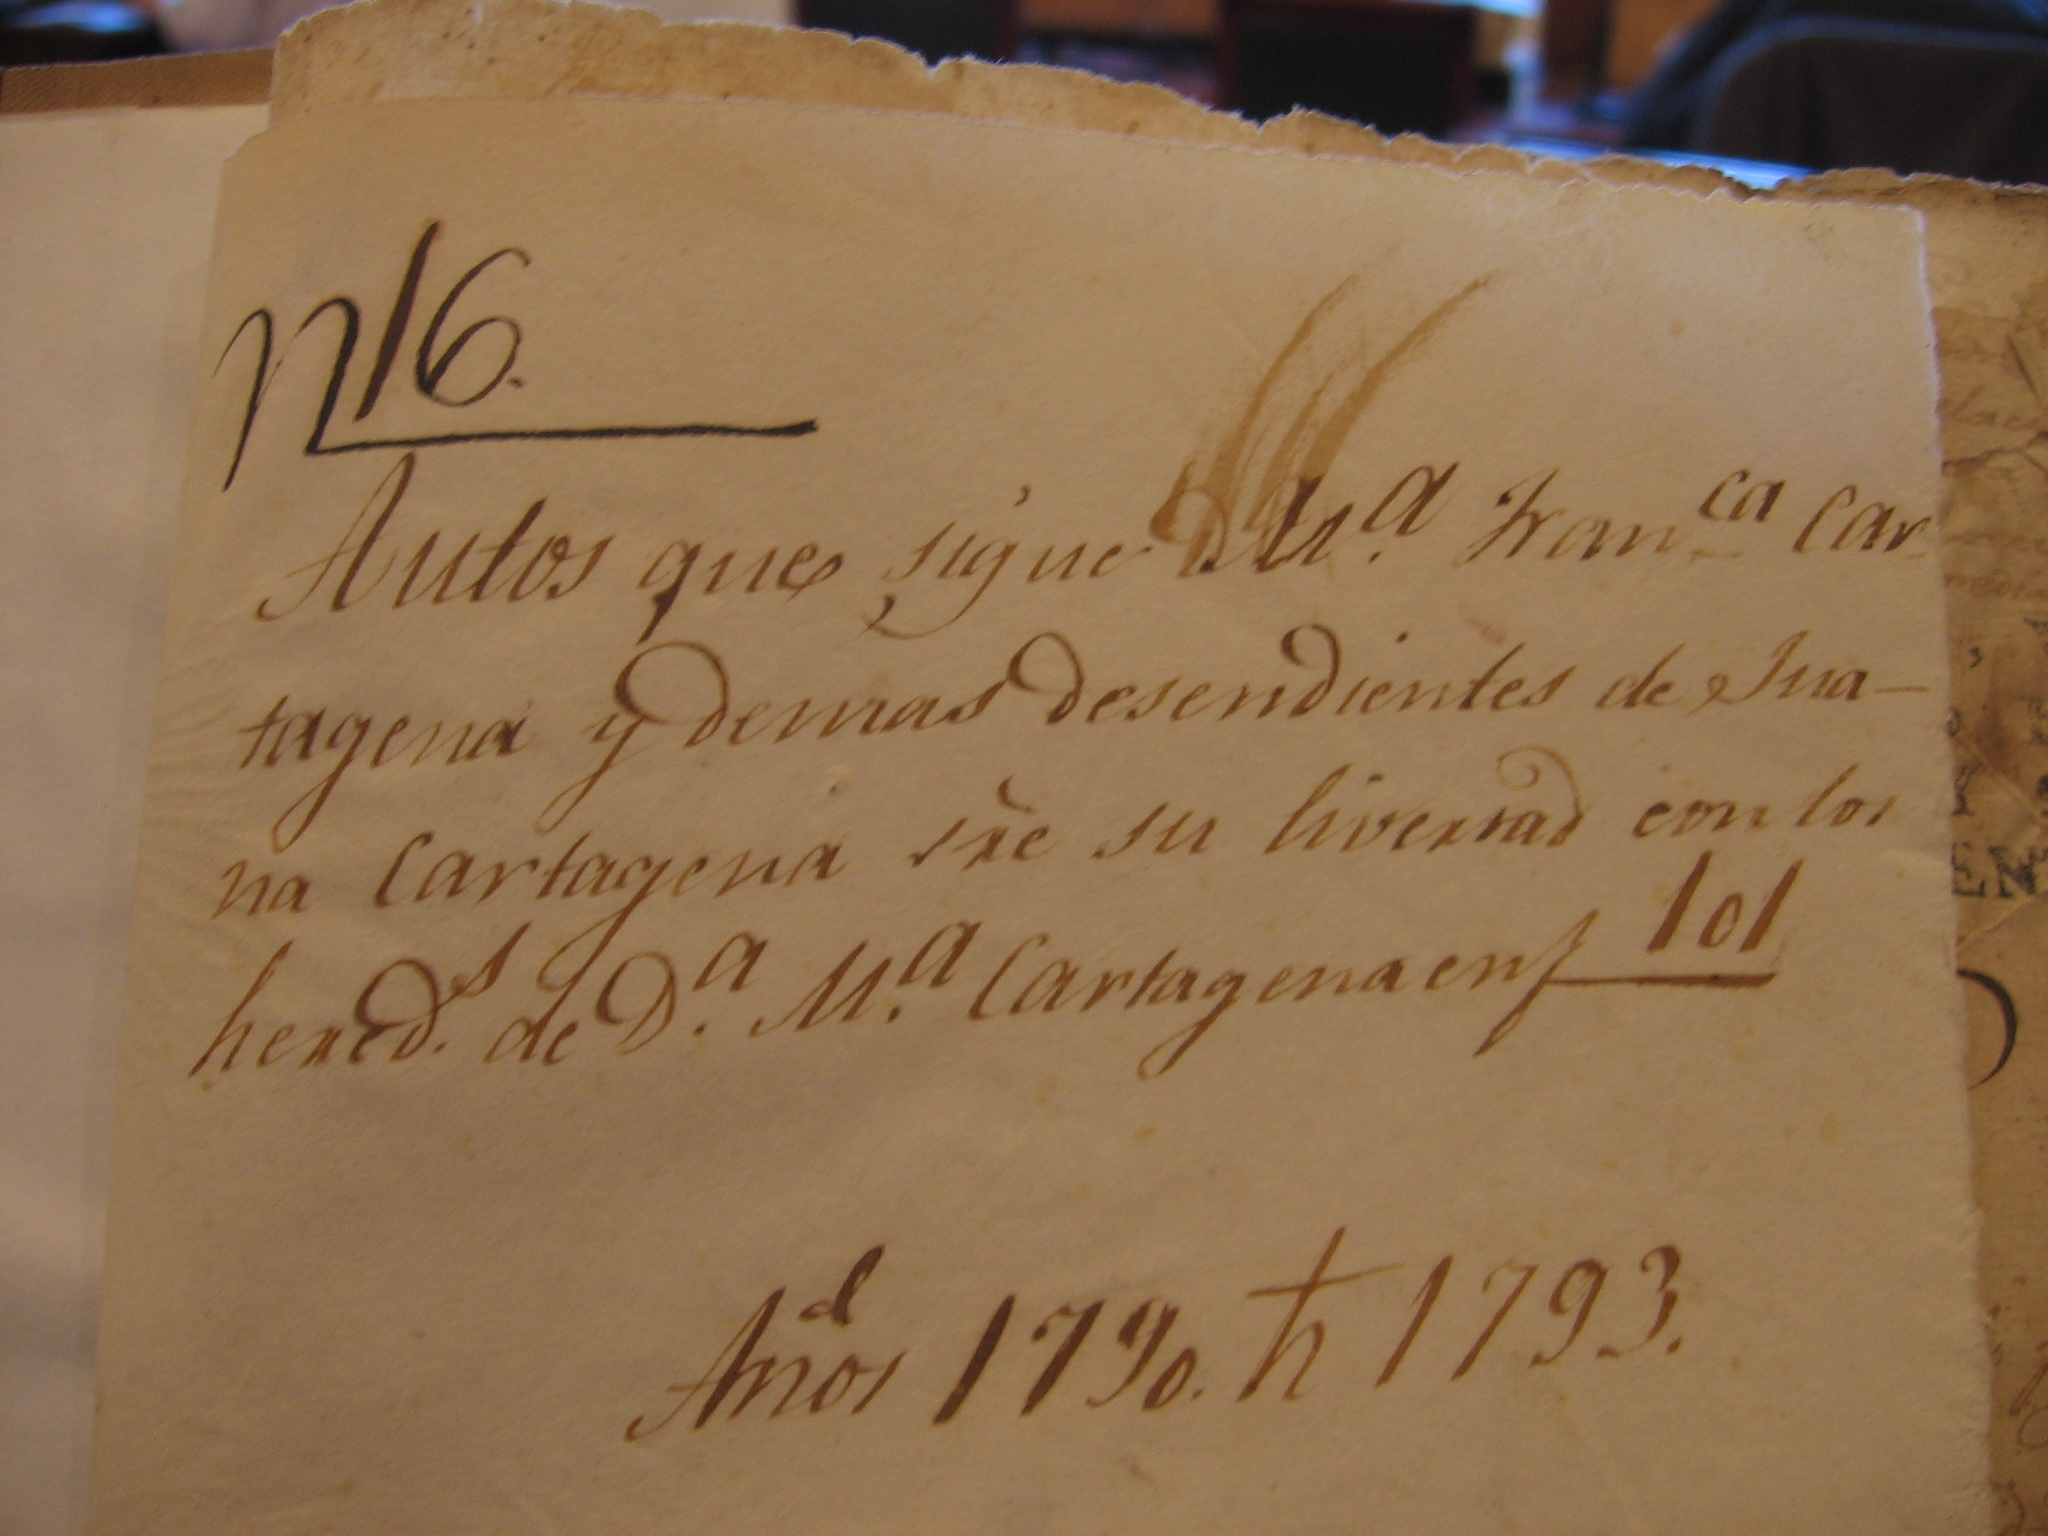 N 16.
Autos que sigue M.ª Fran.ca Car-
tagena y demas desendientes de Jua-
na Cartagena sre su livertad con los
hered.s de D.ª M.ª Cartagena en f 101
Años d 1790. h 1793.
EN